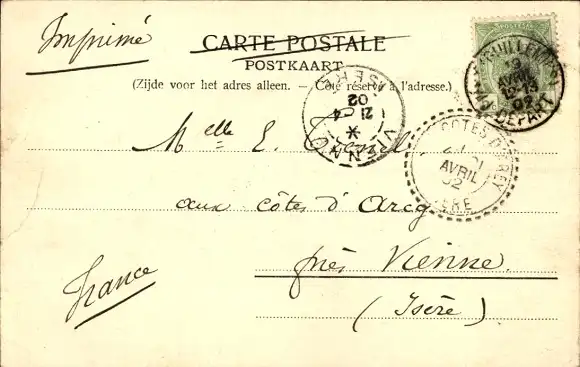 Imprimé
CARTE POSTALE
POSTKAART
(Zijde voor het adres alleen. — Côté réservé à l'adresse.)
GUILLEMINS
19
AVRIL
12-15
02
DEPART
VIENNE
21
4
02
ISERE
COTES D'AREY
21
AVRIL
02
ISERE
Melle E.
aux côtes d'Arcq
près Vienne.
(Isère)
France